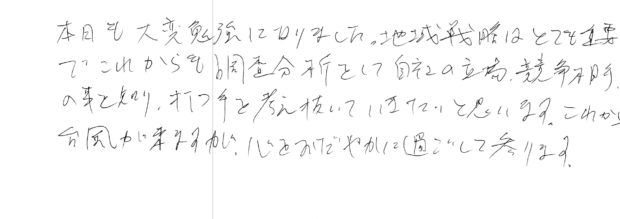 本日も大変勉強になりました。地域戦略はとても重要
でこれからも調査分析として自社の立場、競争相手
の事を知り、打つ手を考え抜いていきたいと思います。これから
台風が来ますが、心をおだやかに過ごして参ります。